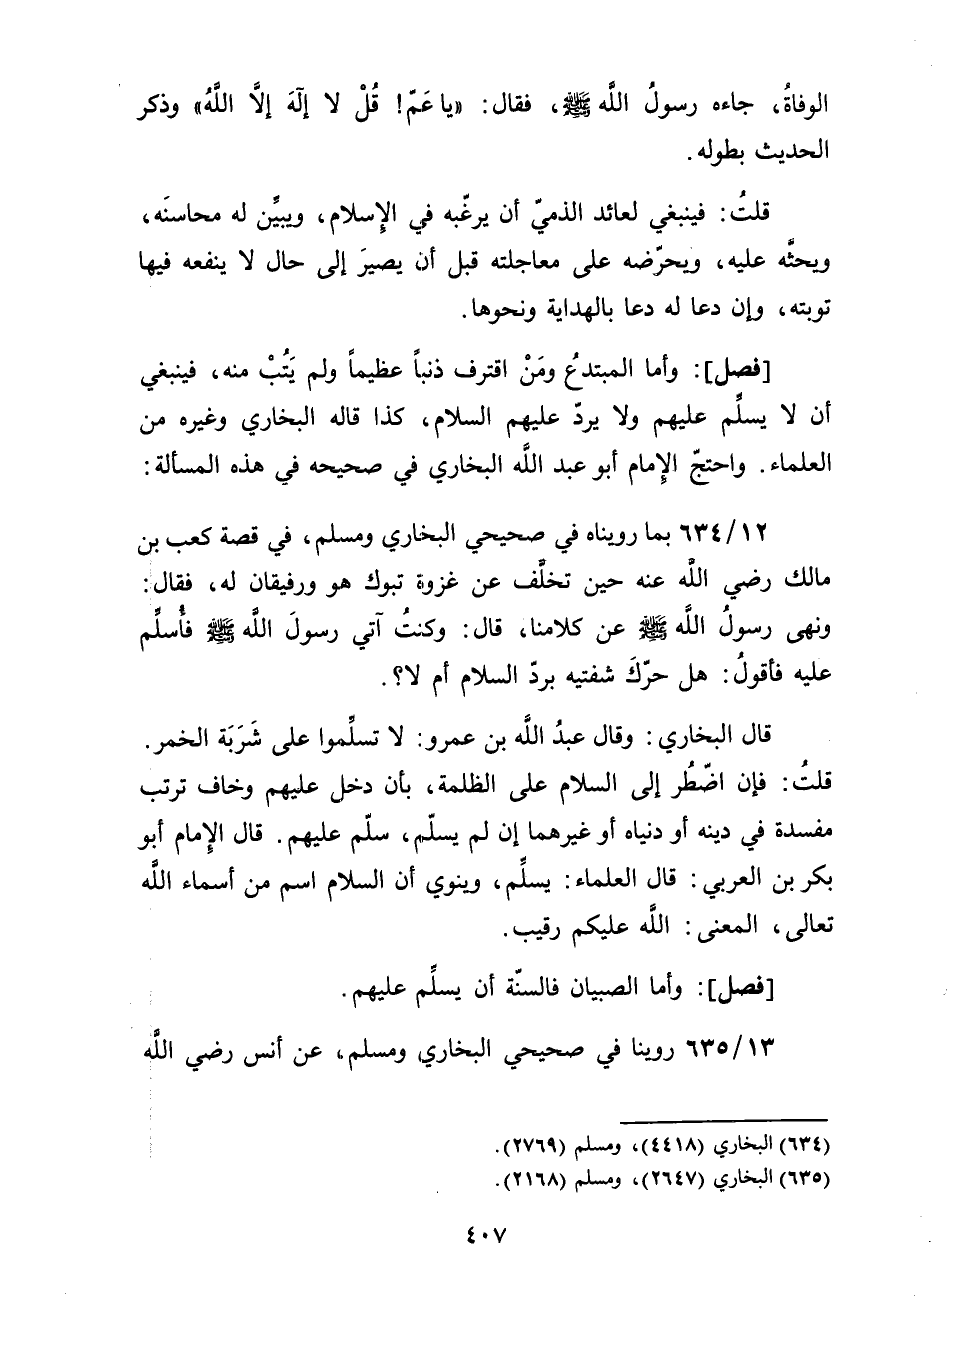 الوفاةُ، جاءه رسولُ اللَّه ﷺ، فقال: «يا عَمّ! قُلْ لا إلَهَ إلَّا اللَّهُ» وذكر
الحديث بطوله.
قلتُ: فينبغي لعائد الذميّ أن يرغّبه في الإِسلام، ويبيِّن له محاسنَه،
ويحثَّه عليه، ويحرّضه على معاجلته قبل أن يصيرَ إلى حال لا ينفعه فيها
توبته، وإن دعا له دعا بالهداية ونحوها.
[فصل]: وأما المبتدعُ ومَنْ اقترف ذنباً عظيماً ولم يَتُبْ منه، فينبغي
أن لا يسلِّم عليهم ولا يردّ عليهم السلام، كذا قاله البخاري وغيره من
العلماء. واحتجّ الإِمام أبو عبد اللَّه البخاري في صحيحه في هذه المسألة:
٦٣٤/١٢ بما رويناه في صحيحي البخاري ومسلم، في قصة كعب بن
مالك رضي اللَّه عنه حين تخلَّف عن غزوة تبوك هو ورفيقان له، فقال:
ونهى رسولُ اللَّه ﷺ عن كلامنا، قال: وكنتُ آتي رسولَ اللَّه ﷺ فأُسلِّم
عليه فأقولُ: هل حرّكَ شفتيه بردّ السلام أم لا؟.
قال البخاري: وقال عبدُ اللَّه بن عمرو: لا تسلِّموا على شَرَبَة الخمر.
قلتُ: فإن اضّطُر إلى السلام على الظلمة، بأن دخل عليهم وخاف ترتب
مفسدة في دينه أو دنياه أو غيرهما إن لم يسلّم، سلّم عليهم. قال الإِمام أبو
بكر بن العربي: قال العلماء: يسلِّم، وينوي أن السلام اسم من أسماء اللَّه
تعالى، المعنى: اللَّه عليكم رقيب.
[فصل]: وأما الصبيان فالسنّة أن يسلِّم عليهم.
٦٣٥/١٣ روينا في صحيحي البخاري ومسلم، عن أنس رضي اللَّه
(٦٣٤) البخاري (٤٤١٨)، ومسلم (٢٧٦٩).
(٦٣٥) البخاري (٢٦٤٧)، ومسلم (٢١٦٨).
٤٠٧